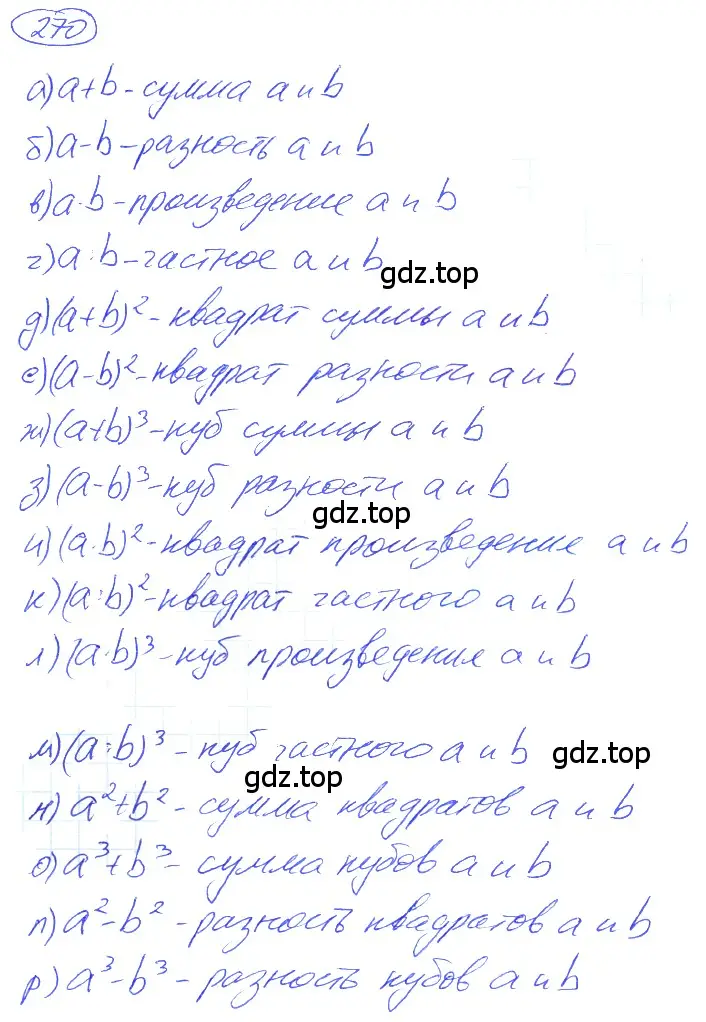 270
а) a+b - сумма a и b
б) a-b - разность a и b
в) a·b - произведение a и b
г) a:b - частное a и b
gdz.top
д) (a+b)² - квадрат суммы a и b
е) (a-b)² - квадрат разности a и b
ж) (a+b)³ - куб суммы a и b
з) (a-b)³ - куб разности a и b
gdz.top
и) (a·b)² - квадрат произведение a и b
к) (a:b)² - квадрат частного a и b
л) (a·b)³ - куб произведения a и b
м) (a:b)³ - куб частного a и b
gdz.top
gdz.top
н) a²+b² - сумма квадратов a и b
о) a³+b³ - сумма кубов a и b
п) a²-b² - разность квадратов a и b
р) a³-b³ - разность кубов a и b